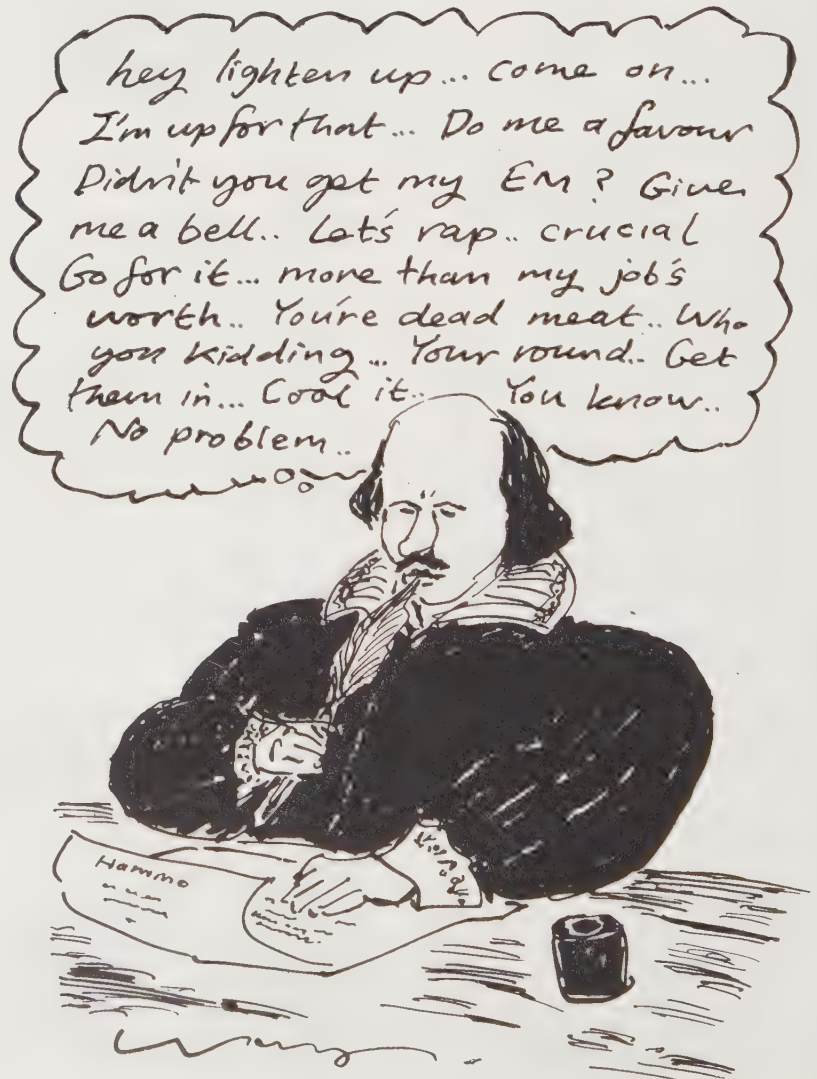 hey lighten up... come on...
I'm up for that... Do me a favour
Didn't you get my EM? Give
me a bell.. Let's rap.. crucial
Go for it... more than my job's
worth.. You're dead meat.. Who
you kidding... Your round.. Get
them in... Cool it.. You know..
No problem..
Hammo